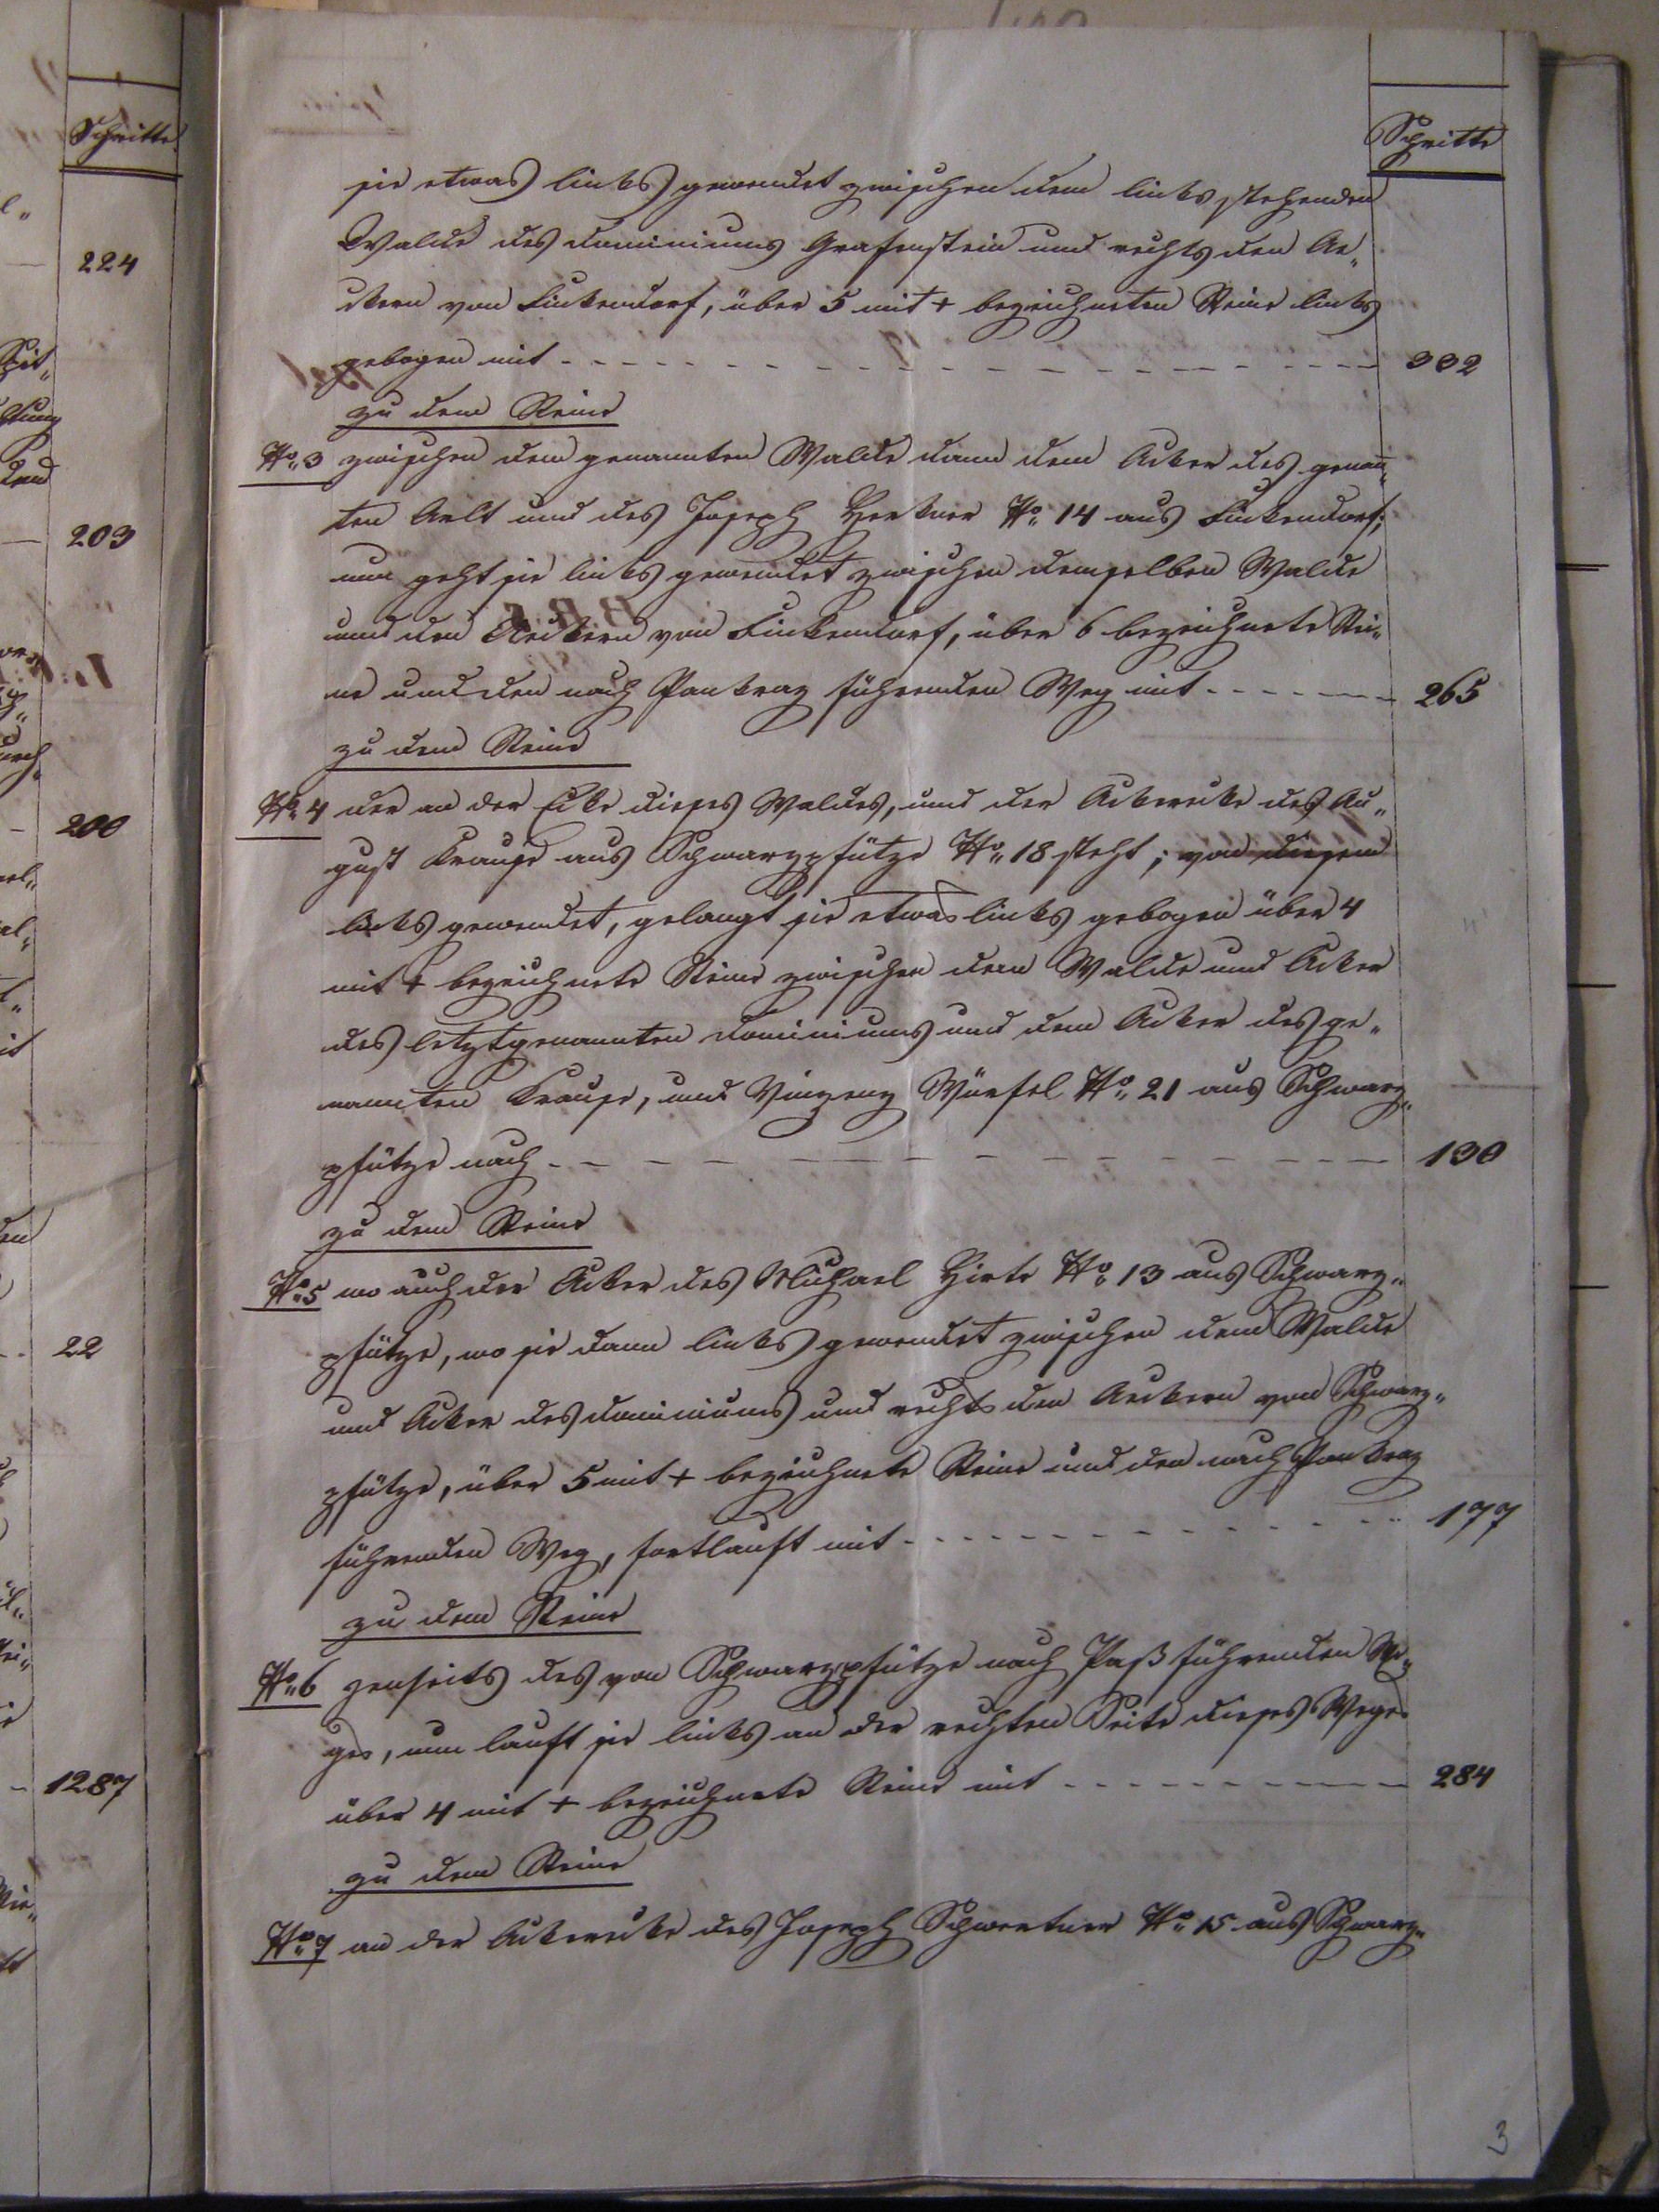 Schritte
224
203
200
22
1287
Schritte
sie etwas links gewendet zwischen dem links stehenden
Walde des Dominiums Grafenstein und rechts den Ae„
ckern von Finkendorf, über 5 mit + bezeichneten Steine links
gebogen mit 332
zu dem Steine
No. 3 zwischen dem genannten Walde dann dem Acker des genan„
ten Ault und des Joseph Hertner No. 14 aus Finkendorf;
nun geht sie links gewendet zwischen demselben Walde
und den Aeckern von Finkendorf, über 6 bezeichnete Stei„
ne und den nach Pankraz führenden Weg mit 265
zu dem Steine
No. 4 der an der Ecke dieses Waldes, und der Ackerecke des Au„
gust Krause aus Schwarzpfütze No. 18 steht; von diesem
links gewendet, gelangt sie etwas links gebogen über 4
mit + bezeichnete Steine zwischen dem Walde und Acker
des letztgenannten Dominiums und dem Acker des ge„
nannten Krause, und Vinzenz Würfel No. 21 aus Schwarz„
pfütze nach 130
zu dem Steine
No. 5 wo auch der Acker des Michael Hirte No. 13 aus Schwarz„
pfütze, wo sie dann links gewendet zwischen dem Walde
und Acker des Dominiums und rechts den Aeckern von Schwarz„
pfütze, über 5 mit + bezeichnete Steine und den nach Pankraz
führenden Weg, fortlauft mit 177
zu dem Steine
No. 6 jenseits des von Schwarzpfütze nach Paß führenden We„
ges, nun lauft sie links an der rechten Seite dieses Weges
über 4 mit + bezeichnete Steine mit 284
zu dem Steine
No. 7 an der Ackerecke des Joseph Schwertner No. 15 aus Schwarz„
3